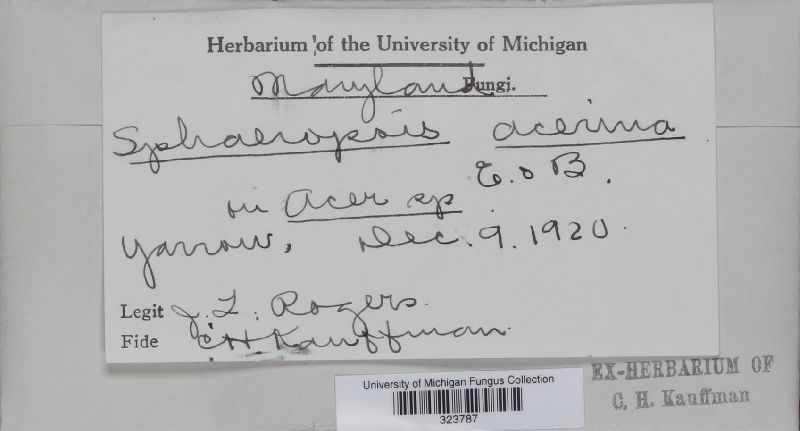 Herbarium of the University of Michigan
Maryland Fungi.
Sphaeropsis acerina
E. & B.
on Acer sp.
Yarrow, Dec. 9. 1920.
Legit J. L. Rogers.
Fide C H Kauffman
EX-HERBARIUM OF
C. H. Kauffman
University of Michigan Fungus Collection
323787